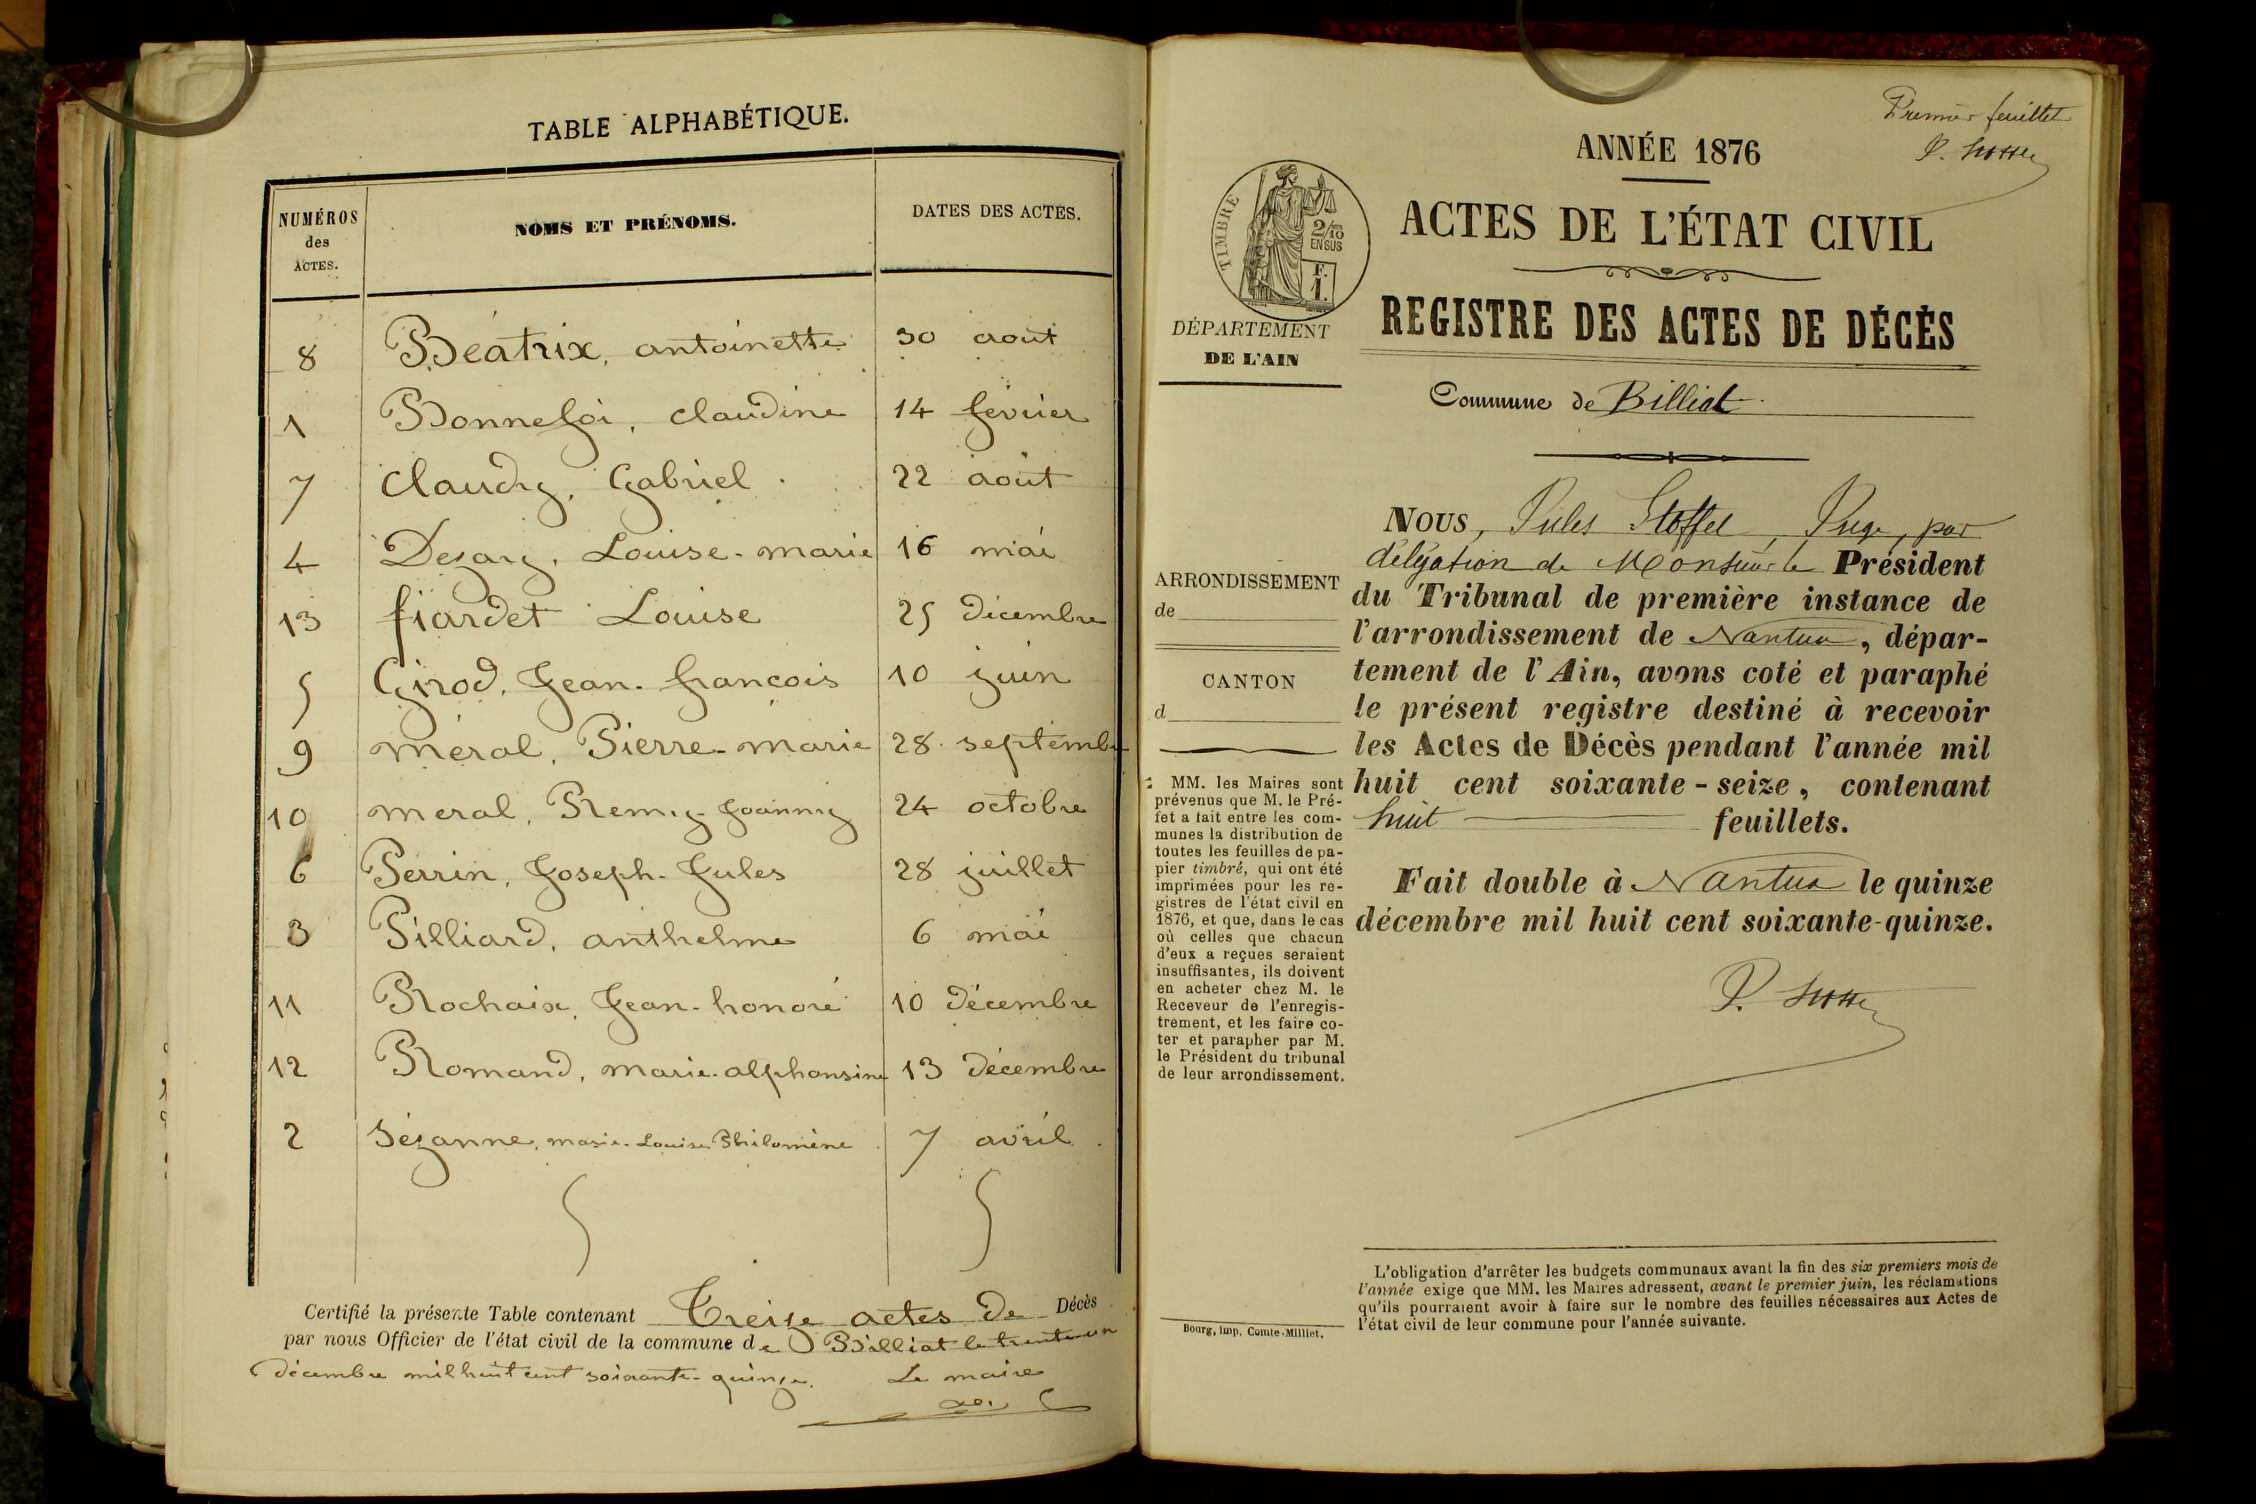 TABLE ALPHABÉTIQUE.
NUMÉROS des ACTES. NOMS ET PRÉNOMS. DATES DES ACTES.
8 Béatrix, antoinette 30 août
1 Bonnefoi, claudine 14 février
7 Claudy, Gabriel 22 août
4 Dezary, Louise-marie 16 mai
13 fiardet Louise 25 décembre
5 Girod, Jean-francois 10 juin
9 méral, Pierre-marie 28 septembre
10 méral, Remy-Joanny 24 octobre
6 Perrin, Joseph-Jules 28 juillet
3 Pilliard, anthelme 6 mai
11 Rochaix, Jean-honoré 10 décembre
12 Romand, marie-alphonsine 13 décembre
2 Sézanne, marie-Louise Philomène 7 avril
Certifié la présente Table contenant Treize actes de Décès
par nous Officier de l'état civil de la commune de Billiat le trente un
décembre mil huit cent soixante-quinze. Le maire
Premier feuillet
ANNÉE 1876
ACTES DE L'ÉTAT CIVIL
TIMBRE
2/10
EN SUS
F.
1.
REGISTRE DES ACTES DE DÉCÈS
DÉPARTEMENT
DE L'AIN
Commune de Billiat
NOUS, Jules Stoffel, Juge, par
délégation de Monsieur le Président
du Tribunal de première instance de
l'arrondissement de Nantua, dépar-
tement de l'Ain, avons coté et paraphé
le présent registre destiné à recevoir
les Actes de Décès pendant l'année mil
huit cent soixante-seize, contenant
huit feuillets.
Fait double à Nantua le quinze
décembre mil huit cent soixante-quinze.
ARRONDISSEMENT
de
CANTON
d
MM. les Maires sont
prévenus que M. le Pré-
fet a fait entre les com-
munes la distribution de
toutes les feuilles de pa-
pier timbré, qui ont été
imprimées pour les re-
gistres de l'état civil en
1876, et que, dans le cas
où celles que chacun
d'eux a reçues seraient
insuffisantes, ils doivent
en acheter chez M. le
Receveur de l'enregis-
trement, et les faire co-
ter et parapher par M.
le Président du tribunal
de leur arrondissement.
L'obligation d'arrêter les budgets communaux avant la fin des six premiers mois de
l'année exige que MM. les Maires adressent, avant le premier juin, les réclamations
qu'ils pourraient avoir à faire sur le nombre des feuilles nécessaires aux Actes de
l'état civil de leur commune pour l'année suivante.
Bourg, imp. Comte-Milliet.